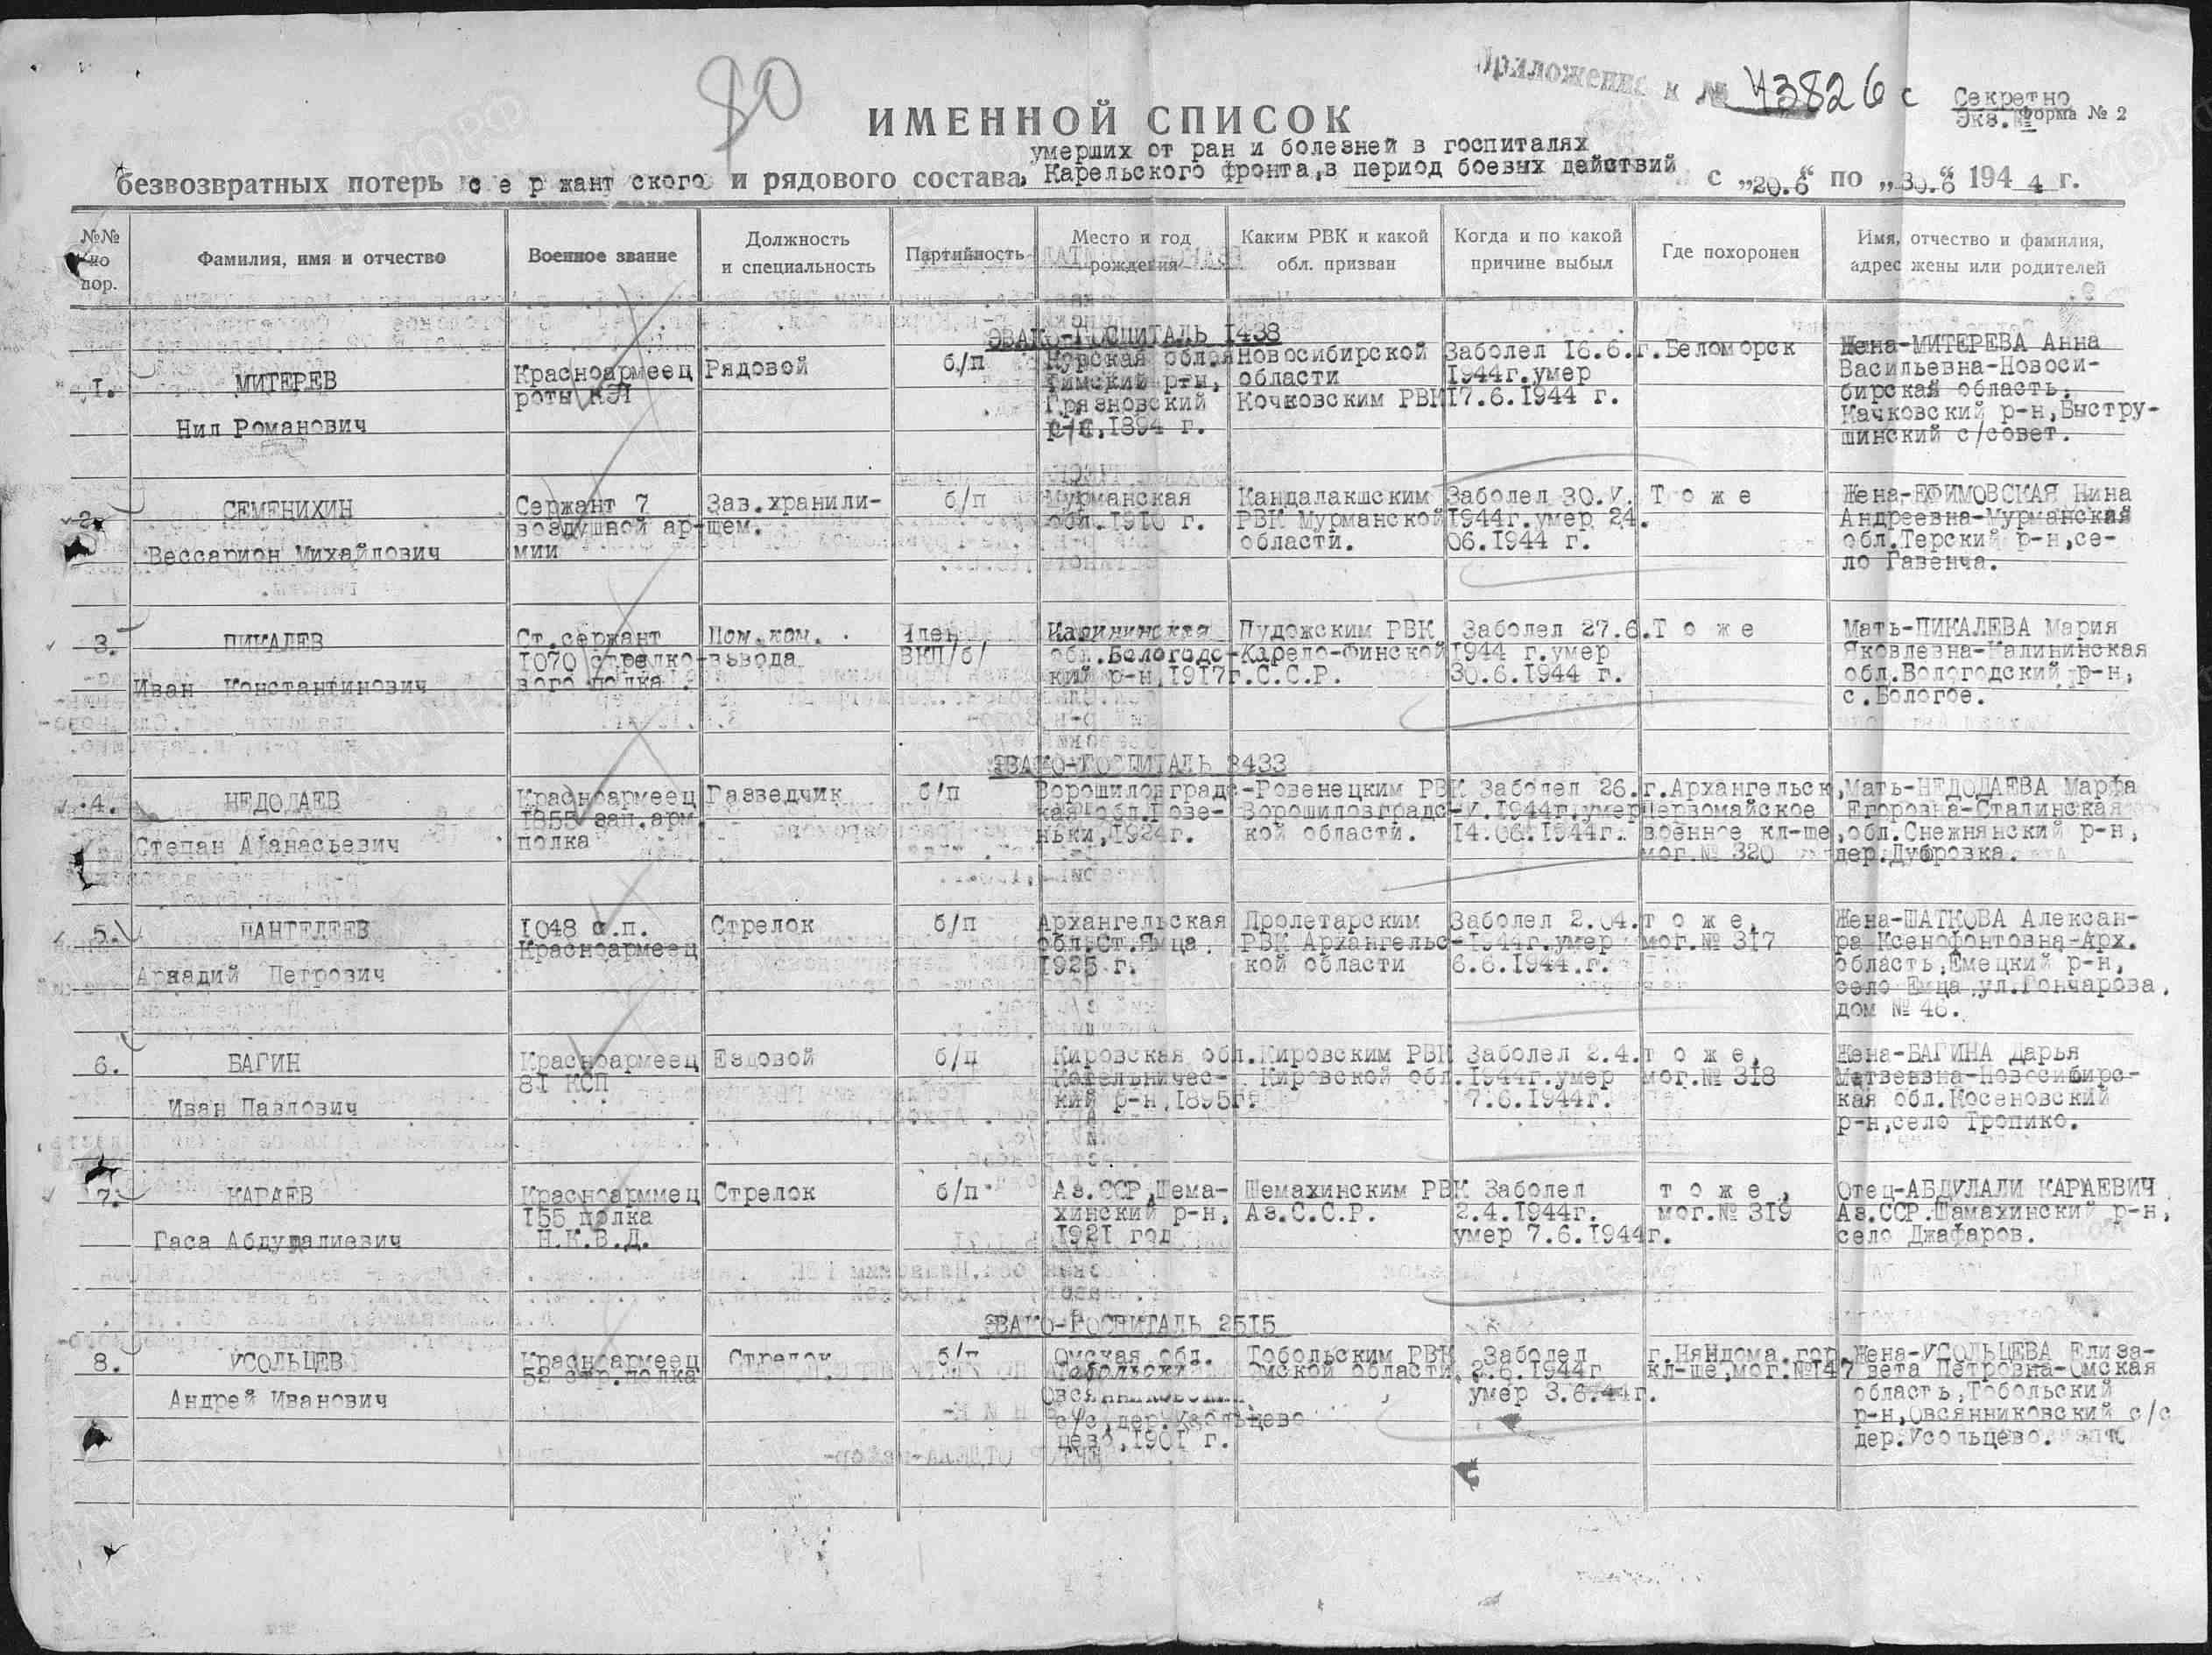 80
Приложение к № 43826 с
Секретно
Экз.№
Форма № 2
ИМЕННОЙ СПИСОК
умерших от ран и болезней в госпиталях
безвозвратных потерь сержантского и рядового состава, Карельского фронта,в период боевых действий с „20.6“ по „30.6“ 1944 г.
№№ по пор.
Фамилия, имя и отчество
Военное звание
Должность и специальность
Партийность
Место и год рождения
Каким РВК и какой обл. призван
Когда и по какой причине выбыл
Где похоронен
Имя, отчество и фамилия, адрес жены или родителей
ЭВАКО-ГОСПИТАЛЬ 1438
1.
МИТЕРЕВ
Нил Романович
Красноармеец
роты
Рядовой
б/п
Курская
Тимский
Грязновский
с/с,1894 г.
Новосибирской
области
Кочковским РВК
Заболел 16.6.
1944г.умер
17.6.1944 г.
г.Беломорск
Жена-МИТЕРЕВА Анна
Васильевна-Новоси-
бирская область,
Качковский р-н,Быстру-
шинский с/совет.
2.
СЕМЕНИХИН
Вессарион Михайлович
Сержант 7
воздушной ар-
мии
Зав.хранили-
щем.
б/п
Мурманская
обл.1910 г.
Кандалакшским
РВК Мурманской
области.
Заболел 30.У.
1944г.умер 24.
06.1944 г.
Т о ж е
Жена-ЕФИМОВСКАЯ Нина
Андреевна-Мурманская
обл.Терский р-н,се-
ло Гавенча.
3.
ПИКАЛЕВ
Иван Константинович
Ст.сержант
1070 стрелко-
вого полка.
Пом.ком.
взвода
Член
ВКП/б/
Калининская
обл.Бологодс-
кий р-н,1917г.
Пудожским РВК
Карело-Финской
С.С.Р.
Заболел 27.6.
1944 г.умер
30.6.1944 г.
Т о ж е
Мать-ПИКАЛЕВА Мария
Яковлевна-Калининская
обл.Вологодский р-н,
с.Бологое.
ЭВАКО-ГОСПИТАЛЬ 2433
4.
НЕДОДАЕВ
Степан Афанасьевич
Красноармеец
1855 зап.арм.
полка
Разведчик
б/п
Ворошиловградс-
кая обл.Рове-
ньки,1924г.
Ровенецким РВК
Ворошиловградс-
кой области.
Заболел 26.
У.1944г.умер
14.06.1944г.
г.Архангельск,
Первомайское
военное кл-ще,
мог.№ 320
Мать-НЕДОДАЕВА Марфа
Егоровна-Сталинская
обл.Снежнянский р-н,
дер.Дубровка.
5.
ПАНТЕЛЕЕВ
Аркадий Петрович
1048 с.п.
Красноармеец
Стрелок
б/п
Архангельская
обл.Ст.Ямца.
1925 г.
Пролетарским
РВК Архангельс-
кой области
Заболел 2.04.
1944г.умер
6.6.1944.г.
т о ж е,
мог.№ 317
Жена-ШАТКОВА Алексан-
ра Ксенофонтовна-Арх.
область,Емецкий р-н,
село Емца,ул.Гончарова,
дом № 46.
6.
БАГИН
Иван Павлович
Красноармеец
81 КСП
Ездовой
б/п
Кировская обл.
Котельничес-
кий р-н,1895г.
Кировским РВК
Кировской обл.
Заболел 2.4.
1944г.умер
7.6.1944г.
т о ж е,
мог.№ 318
Жена-БАГИНА Дарья
Матвеевна-Новосибирс-
кая обл.Косеновский
р-н,село Тропико.
7.
КАРАЕВ
Гаса Абдулалиевич
Красноарммец
155 полка
Н.К.В.Д.
Стрелок
б/п
Аз.ССР,Шема-
хинский р-н,
1921 год
Шемахинским РВК
Аз.С.С.Р.
Заболел
2.4.1944г.
умер 7.6.1944г.
т о ж е,
мог.№ 319
Отец-АБДУЛАЛИ КАРАЕВИЧ
Аз.ССР.Шамахинский р-н,
село Джафаров.
ЭВАКО-ГОСПИТАЛЬ 2515
8.
УСОЛЬЦЕВ
Андрей Иванович
Красноармеец
52 стр.полка
Стрелок
б/п
Омская обл.
Тобольский
Овсянниковский
с/с,дер.
1901 г.
Тобольским РВК
Омской области
Заболел
2.6.1944г
умер 3.6.44г.
г.Няндома.гор
кл-ще,мог.№147
Жена-УСОЛЬЦЕВА Елиза-
вета Петровна-Омская
область,Тобольский
р-н,Овсянниковский с/с
дер.Усольцево.